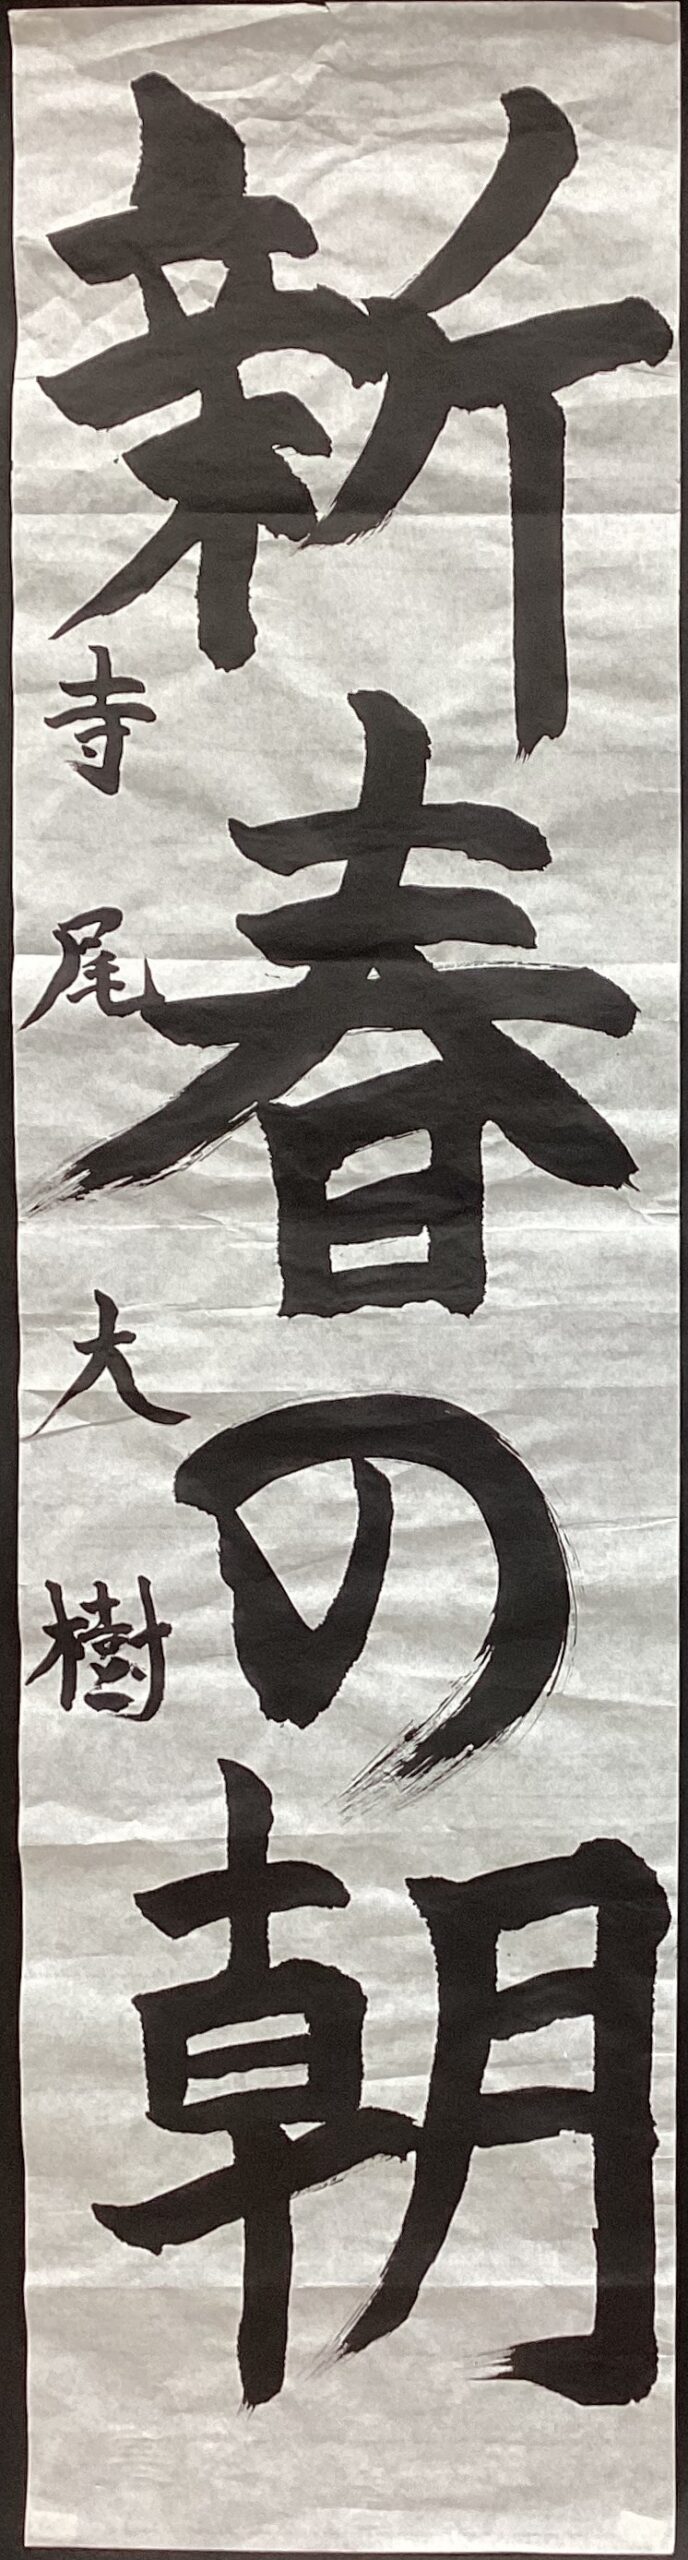 新春の朝
寺尾大樹